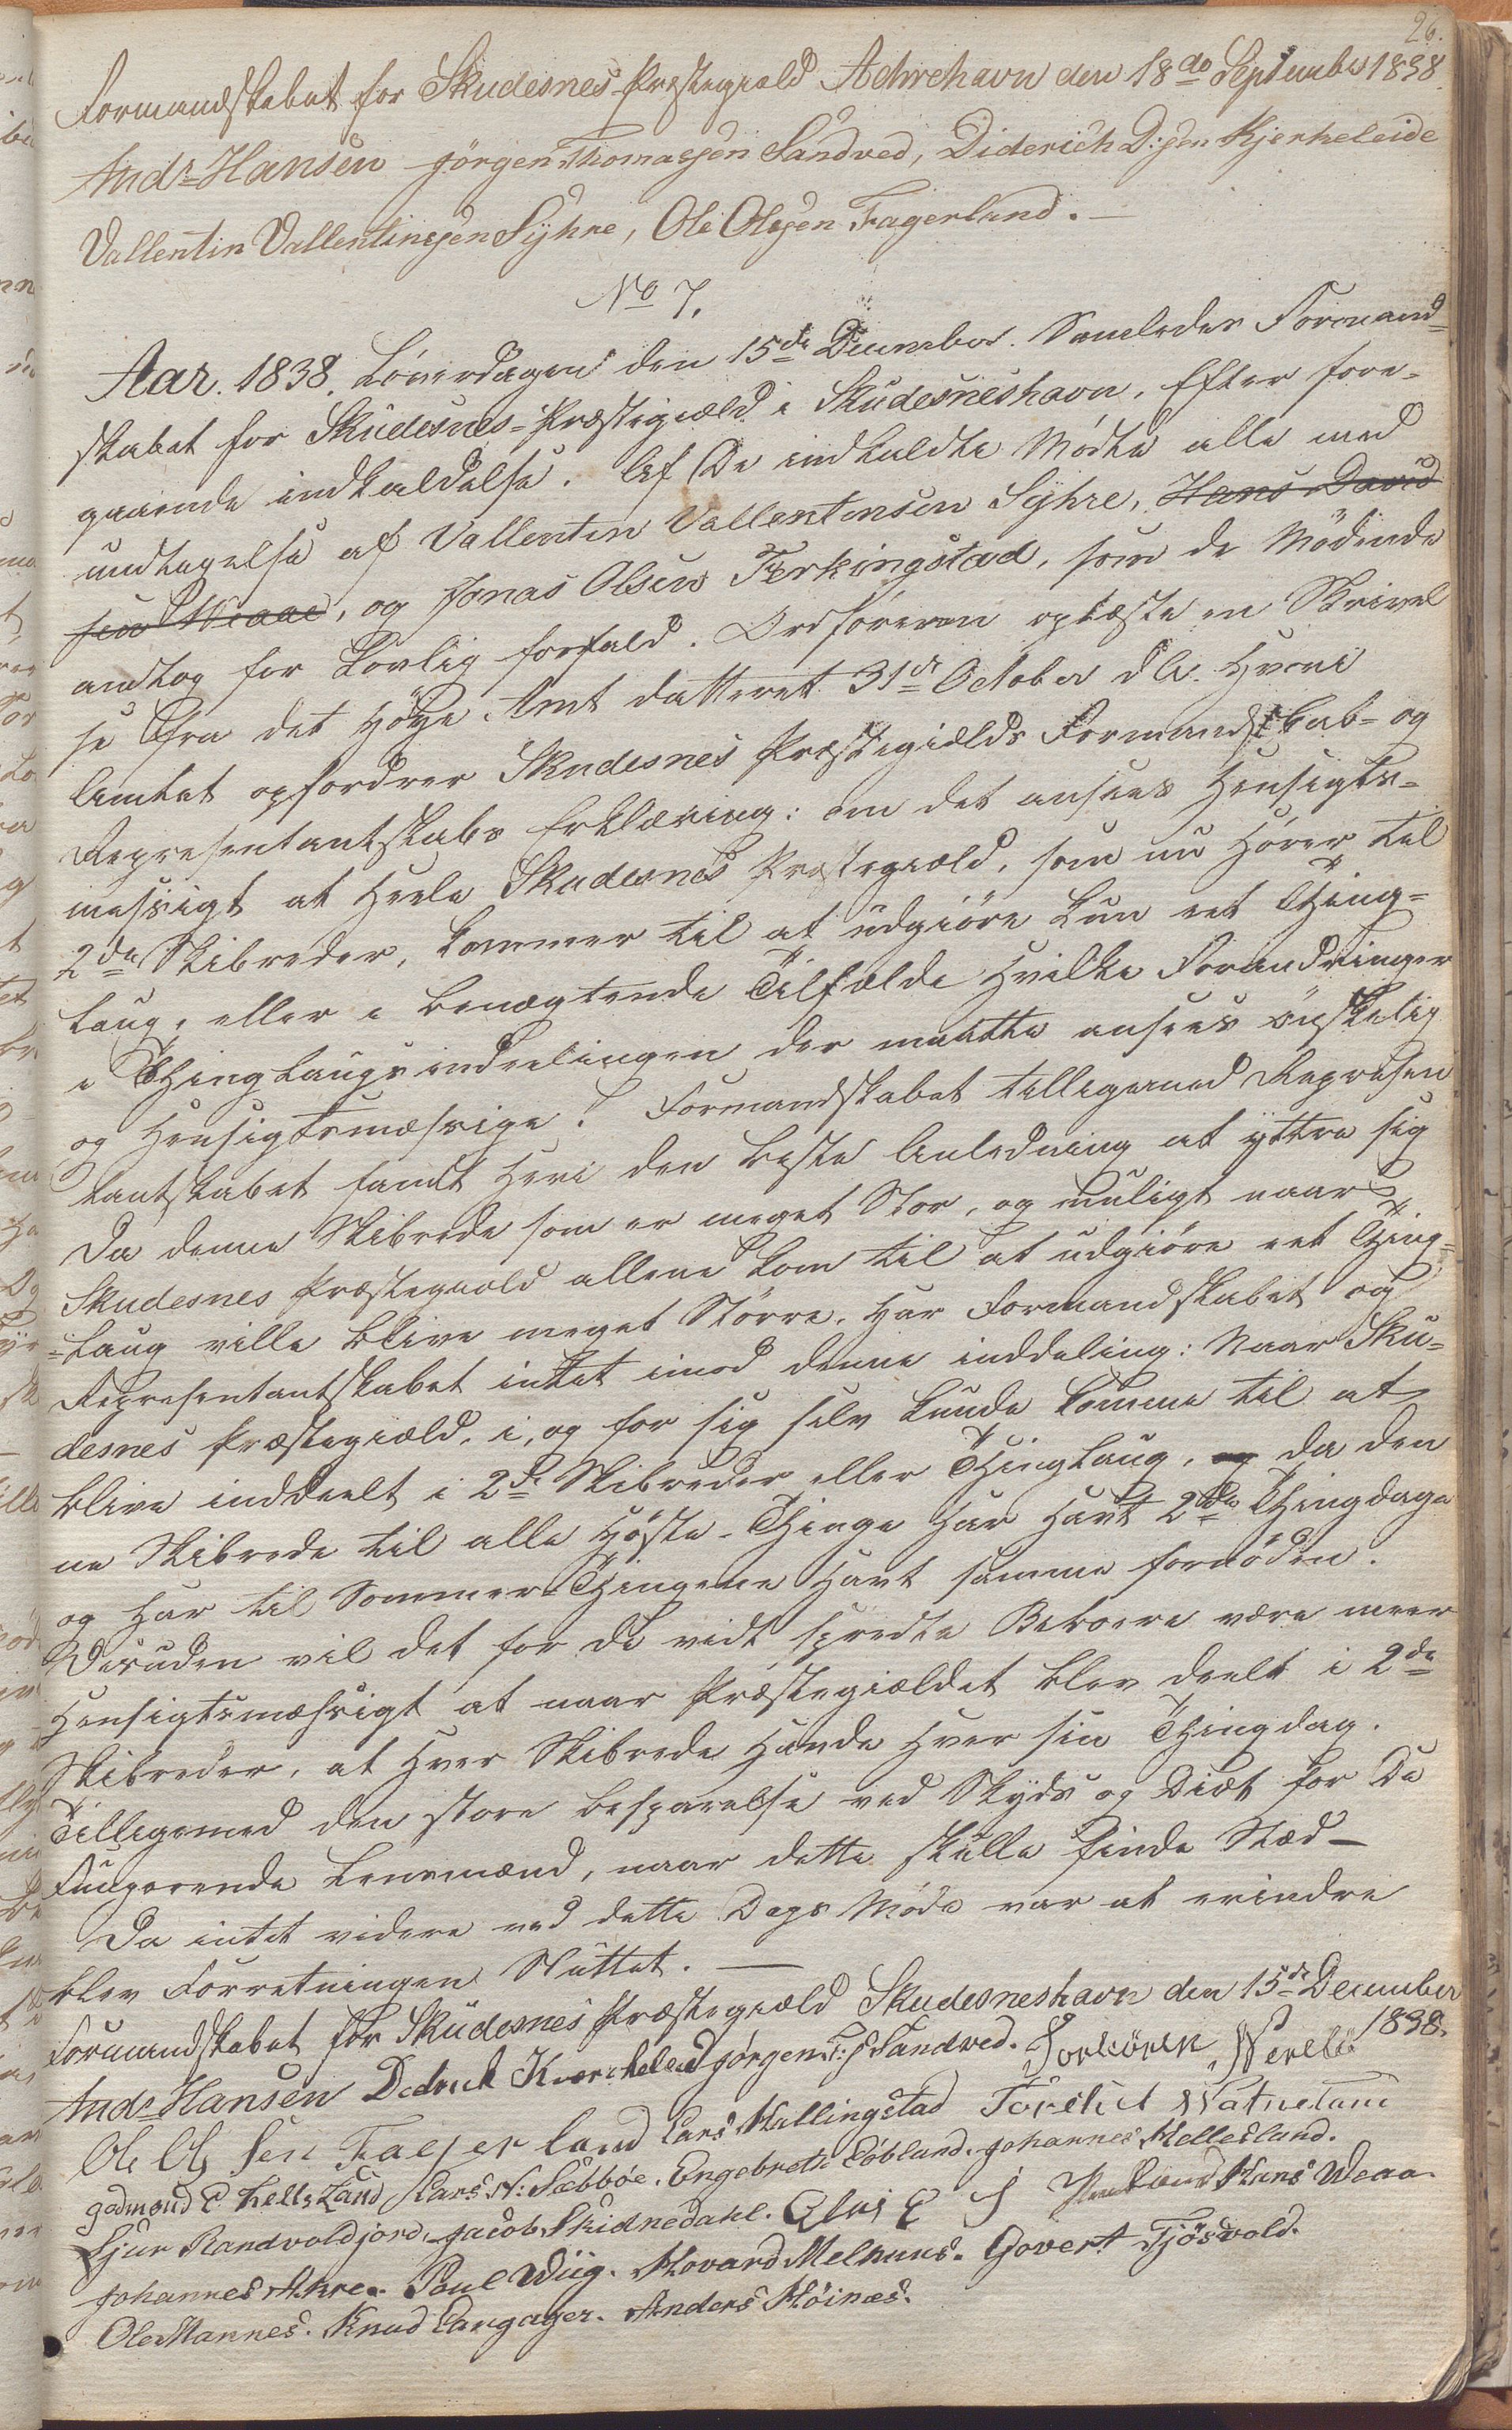 26.
Formandskabet for Skudesnes Præstegiæld Adnrehavn den 18de September 1838
Andr Hansen Jörgen Thomassen Sandved, Diderich D:sen Kjerkeleide
Vallentin Vallentinsen Syhre, Ole Olesen Fagerland. —
No 7.
Aar. 1838. Löverdagen den 15de December. Samledes Formand-
skabet for Skudesnes-Præstegiæld i Skudesneshavn, Efter fore-
gaaende indkaldelse. Af De indkaldte Mödte alle med
undtagelse af Vallentin Vallentinsen Syhre, Hans David
sen Weaae, og Jonas Olsen Ferkingstad, som de Mödende
andtog for Lovlig forfald. Ordföreren oplæste en Skrivel
se fra det Höye Amt datteret 31de October d A. Hvori
Amtet opfordrer Skudesnes Præstegiælds Formandskab- og
Representantskabs Erklæring: om det ansees Hensigts-
mæssigt at Heele Skudesnes Præstegiæld, som nu Hörer til
2de Skibreder, kommer til at udgiöre kun eet Thing-
laug, eller i benægtende Tilfælde Hvilke Forandringer
i Thinglaugsinddelingen der maatte ansees önskelig
og Hensigtsmæssige? Formandskabet tilligemed Represen
tantskabet fandt Heri den beste Anledning at yttre sig
Da denne Skibrede som er meget Stor, og muligt naar
Skudesnes Præstegiæld allene kom til at udgiöre eet Thing-
-laug ville blive meget Större. Har Formandskabet og
Representantskabet intet imod denne inddeling: Naar Sku-
desnes Præstegiæld, i, og for sig selv kunde komme til at
blive inddeelt i 2de Skibreder eller Thinglaug, og da den
ne Skibrede til alle Höste-Thinge Har Havt 2de Thingdage
og Har til Sommer-Thingene Havt samme fornöden.
Desuden vil det for de vidt spredte Beboere være meer
Hensigtsmæssigt at naar Præstegiældet blev deelt i 2de
Skibreder, at Hver Skibrede Havde Hver sin Thingdag.
Tilligemed den store besparelse ved Skyds og Diæt for De
Fungerende Lensmænd, naar dette skulle finde Stæd —
Da intet videre ved dette Dags Möde var at erindre
blev Forretningen Sluttet. —
Formandskabet for Skudesnes Præstegiæld Skudesneshavn den 15de December
1838.
Andr Hansen Dedrick Kverkeleid Jörgen T:s Sandved. Torkörnn
Ole Ols Sen Faejer land Lars Hallingstad Torchel Watneland
godmoud E Kells Land Lars N: Sæbböe. Engebreth Löbland. Johannes Hellesland.
Sjur Randvoldjord. Jacob Skidnedahl. Oluf E S Hans Weaa.
Johannes Ahre. Poul Wiig. Hovard Melhuus. Govert Fjösvold.
Ole Mannes. Knud Langager. Anders Höinæs.